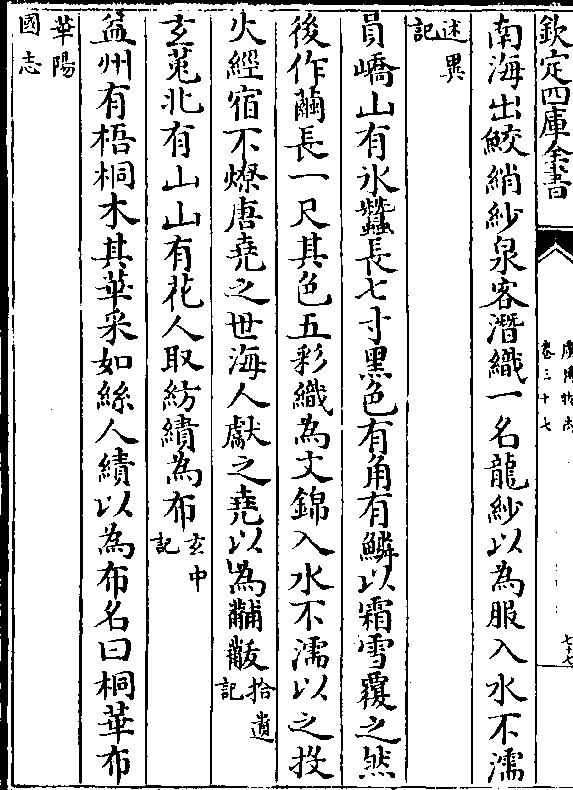 欽定四庫全書
廣博物志
卷三十七
七十七
南海出鮫綃紗泉客潛織一名龍紗以為服入水不濡
述異
記
員嶠山有氷蠶長七寸黑色有角有鱗以霜雪覆之然
後作繭長一尺其色五彩織為文錦入水不濡以之投
火經宿不燎唐堯之世海人獻之堯以為黼黻
拾遺
記
玄菟北有山山有花人取紡績為布
玄中
記
益州有梧桐木其華采如絲人績以為布名曰桐華布
華陽
國志